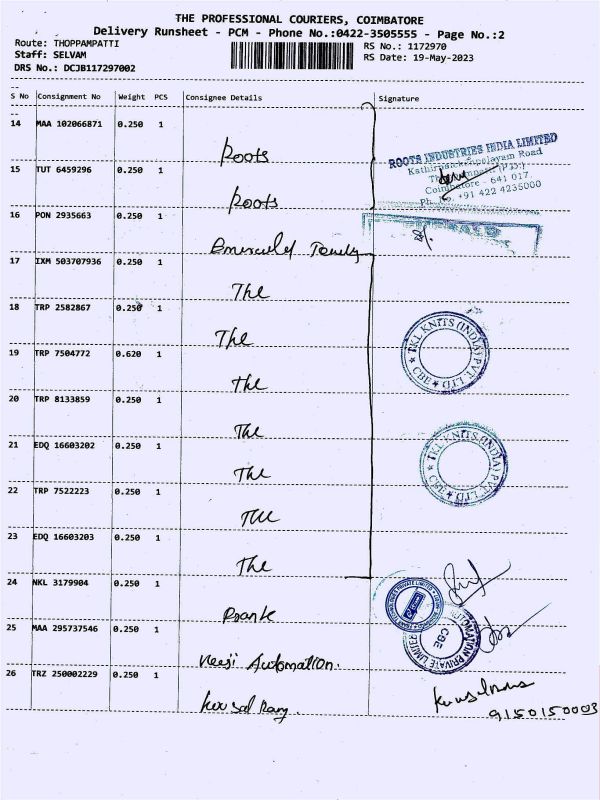 THE PROFESSIONAL COURIERS, COIMBATORE
Delivery Runsheet - PCM - Phone No.:0422-3505555 - Page No.:2
Route: THOPPAMPATTI
Staff: SELVAM
DRS No.: DCJB117297002
RS No.: 1172970
RS Date: 19-May-2023
S No Consignment No Weight PCS Consignee Details Signature
14 MAA 102066871 0.250 1 Roots
ROOTS INDUSTRIES INDIA LIMITED
Road
Coimbatore - 641 017.
+91 422 4235000
15 TUT 6459296 0.250 1 Roots
16 PON 2935663 0.250 1
17 IXM 503707936 0.250 1 The
18 TRP 2582867 0.250 1 The
TKL KNITS (INDIA) PVT LTD
CBE
19 TRP 7504772 0.620 1 The
20 TRP 8133859 0.250 1 The
21 EDQ 16603202 0.250 1 The
TKL KNITS (INDIA) PVT LTD
CBE
22 TRP 7522223 0.250 1
23 EDQ 16603203 0.250 1 The
24 NKL 3179904 0.250 1
25 MAA 295737546 0.250 1 Automation.
AUTOMATION PRIVATE LIMITED
CBE
26 TRZ 250002229 0.250 1
9150150003